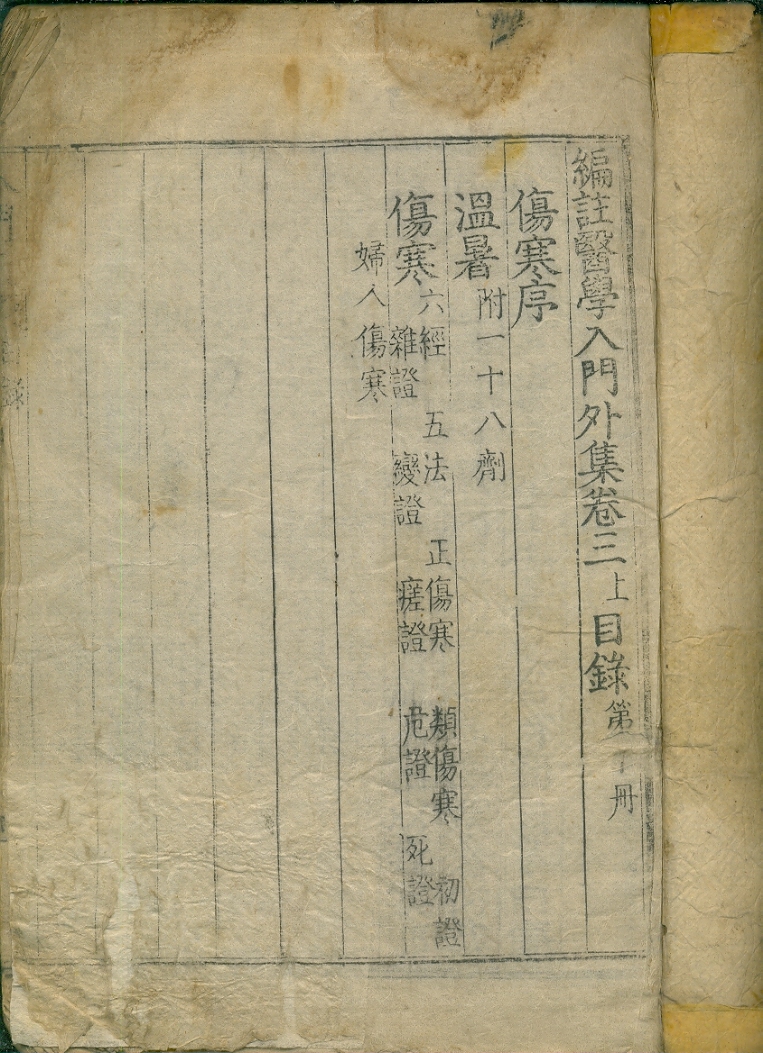 編註醫學入門外集卷三上目錄第 冊
傷寒序
溫暑附一十八劑
傷寒六經 五法 正傷寒 類傷寒 初證
雜證 變證 瘥證 危證 死證
婦人傷寒